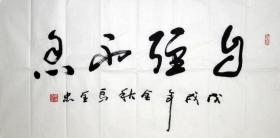 自强不息
戊戌年金秋马全忠